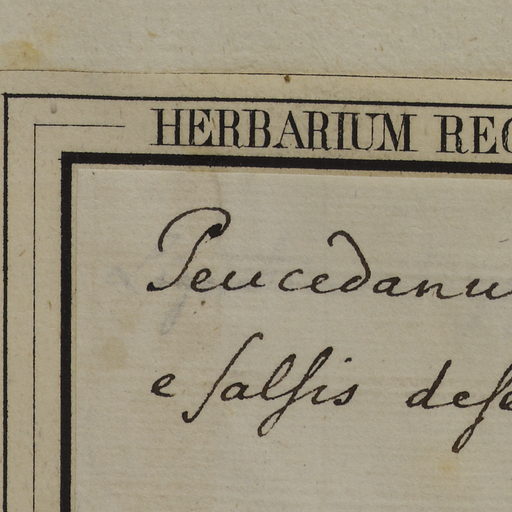 HERBARIUM REG
Peucedanu
e salsis dese